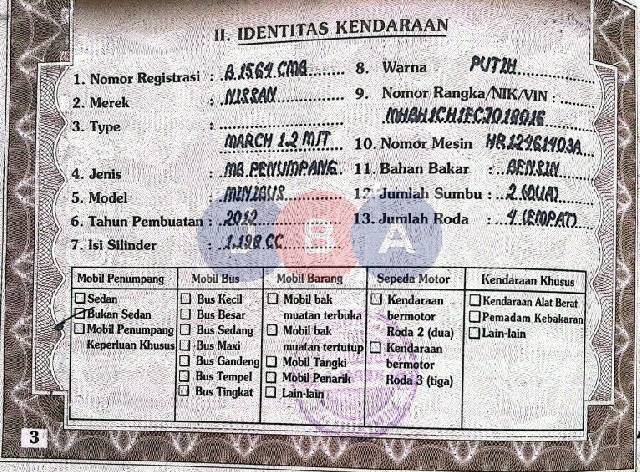 II. IDENTITAS KENDARAAN
1. Nomor Registrasi : B 1564 CMB
2. Merek : NISSAN
3. Type :
MARCH 1.2 M/T
4. Jenis : MB. PENUMPANG
5. Model : MINIBUS
6. Tahun Pembuatan : 2012
7. Isi Silinder : 1.198 CC
8. Warna : PUTIH
9. Nomor Rangka/NIK/VIN :
10. Nomor Mesin
11. Bahan Bakar : BENSIN
12. Jumlah Sumbu : 2 (DUA)
13. Jumlah Roda : 4 (EMPAT)
JBA
Mobil Penumpang
Sedan
Bukan Sedan
Mobil Penumpang
Keperluan Khusus
Mobil Bus
Bus Kecil
Bus Besar
Bus Sedang
Bus Maxi
Bus Gandeng
Bus Tempel
Bus Tingkat
Mobil Barang
Mobil bak
muatan terbuka
Mobil bak
muatan tertutup
Mobil Tangki
Mobil Penarik
Lain-lain
Sepeda Motor
Kendaraan
bermotor
Roda 2 (dua)
Kendaraan
bermotor
Roda 3 (tiga)
Kendaraan Khusus
Kendaraan Alat Berat
Pemadam Kebakaran
Lain-lain
3